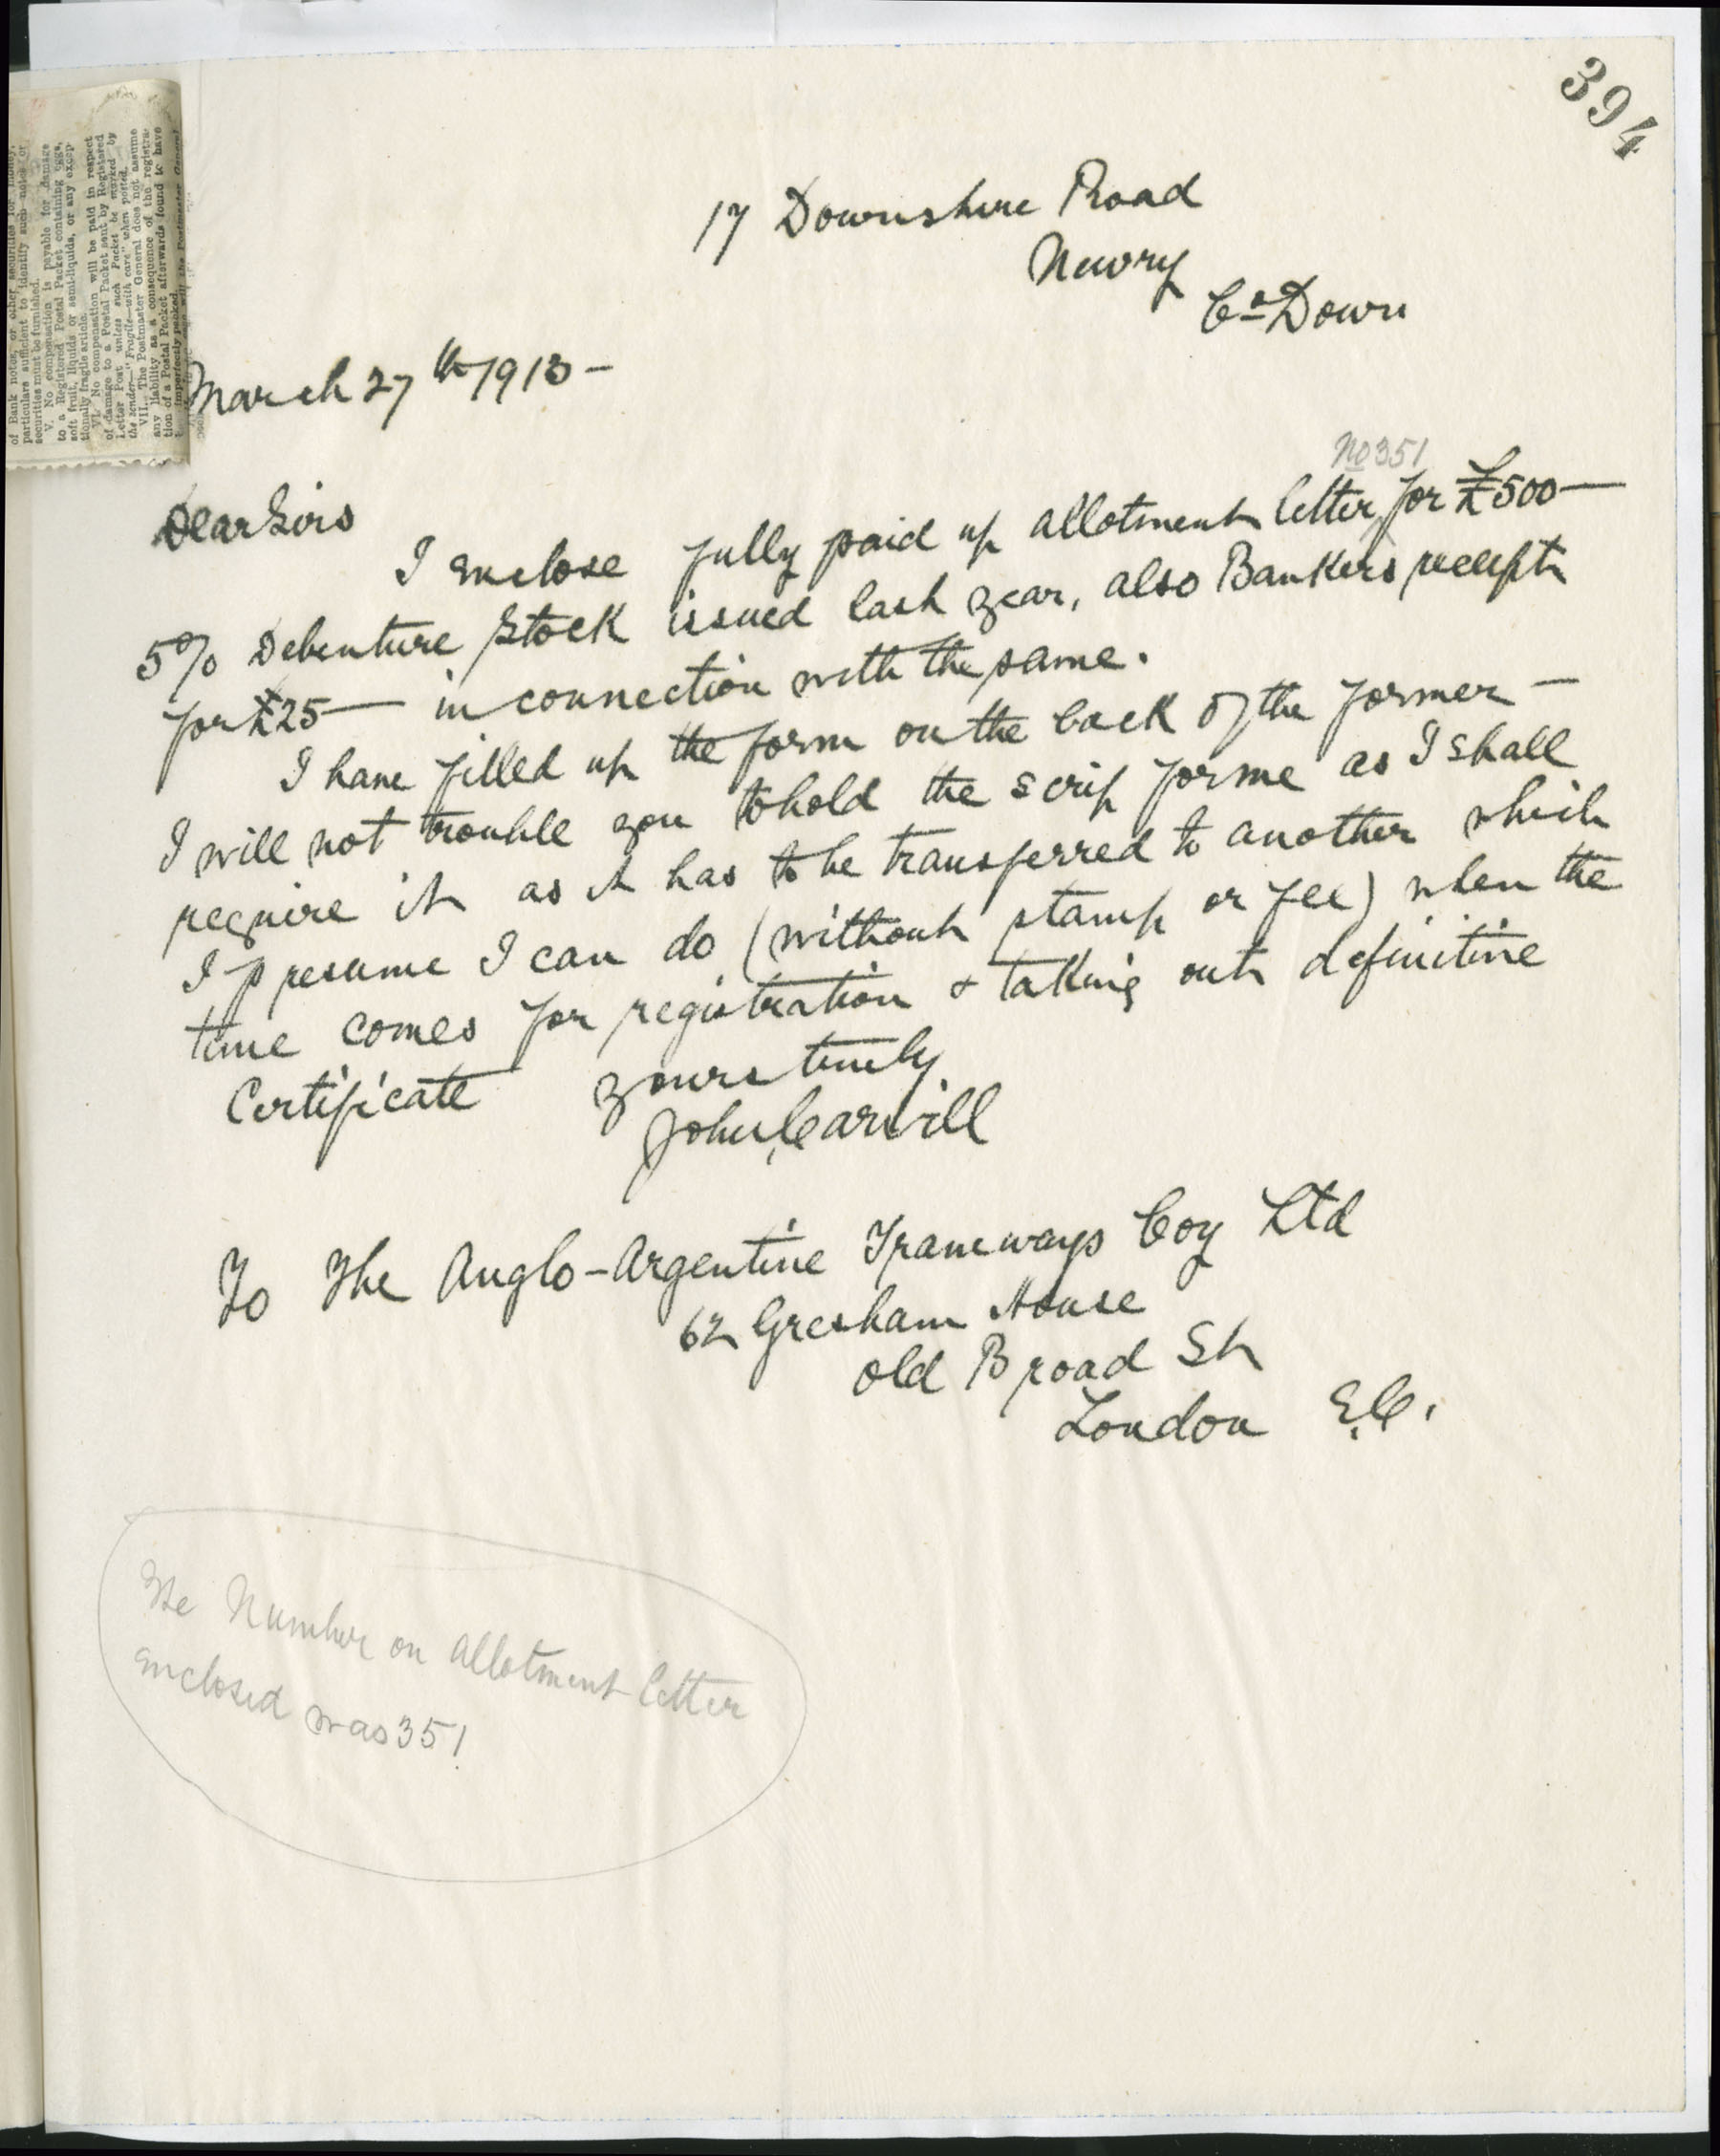 394
17 Downshire Road
Newry
Co Down
March 27th 1913 –
No 351
Dear Sirs
I enclose fully paid up allotment letter for £500 —
5% Debenture Stock issued last year, also Bankers receipt
for £25 — in connection with the same.
I have filled up the form on the back of the former –
I will not trouble you to hold the scrip for me as I shall
require it as it has to be transferred to another which
I presume I can do (without stamp or fee) when the
time comes for registration & taking out definitive
Certificate yours truly
John Carvill
To The Anglo-Argentine Tramways Coy Ltd
62 Gresham House
Old Broad St
London E.C.
The Number on allotment letter
enclosed was 351
of Bank notes, or other securities for money,
particulars sufficient to identify such notes or
securities must be furnished.
V. No compensation is payable for damage
to a Registered Postal Packet containing eggs,
soft fruit, liquids or semi-liquids, or any excep-
tionally fragile article.
VI. No compensation will be paid in respect
of damage to a Postal Packet sent by Registered
Letter Post unless such Packet be marked by
the sender—"Fragile—with care" when posted.
VII. The Postmaster General does not assume
any liability as a consequence of the registra-
tion of a Postal Packet afterwards found to have
imperfectly packed.
the Postmaster General